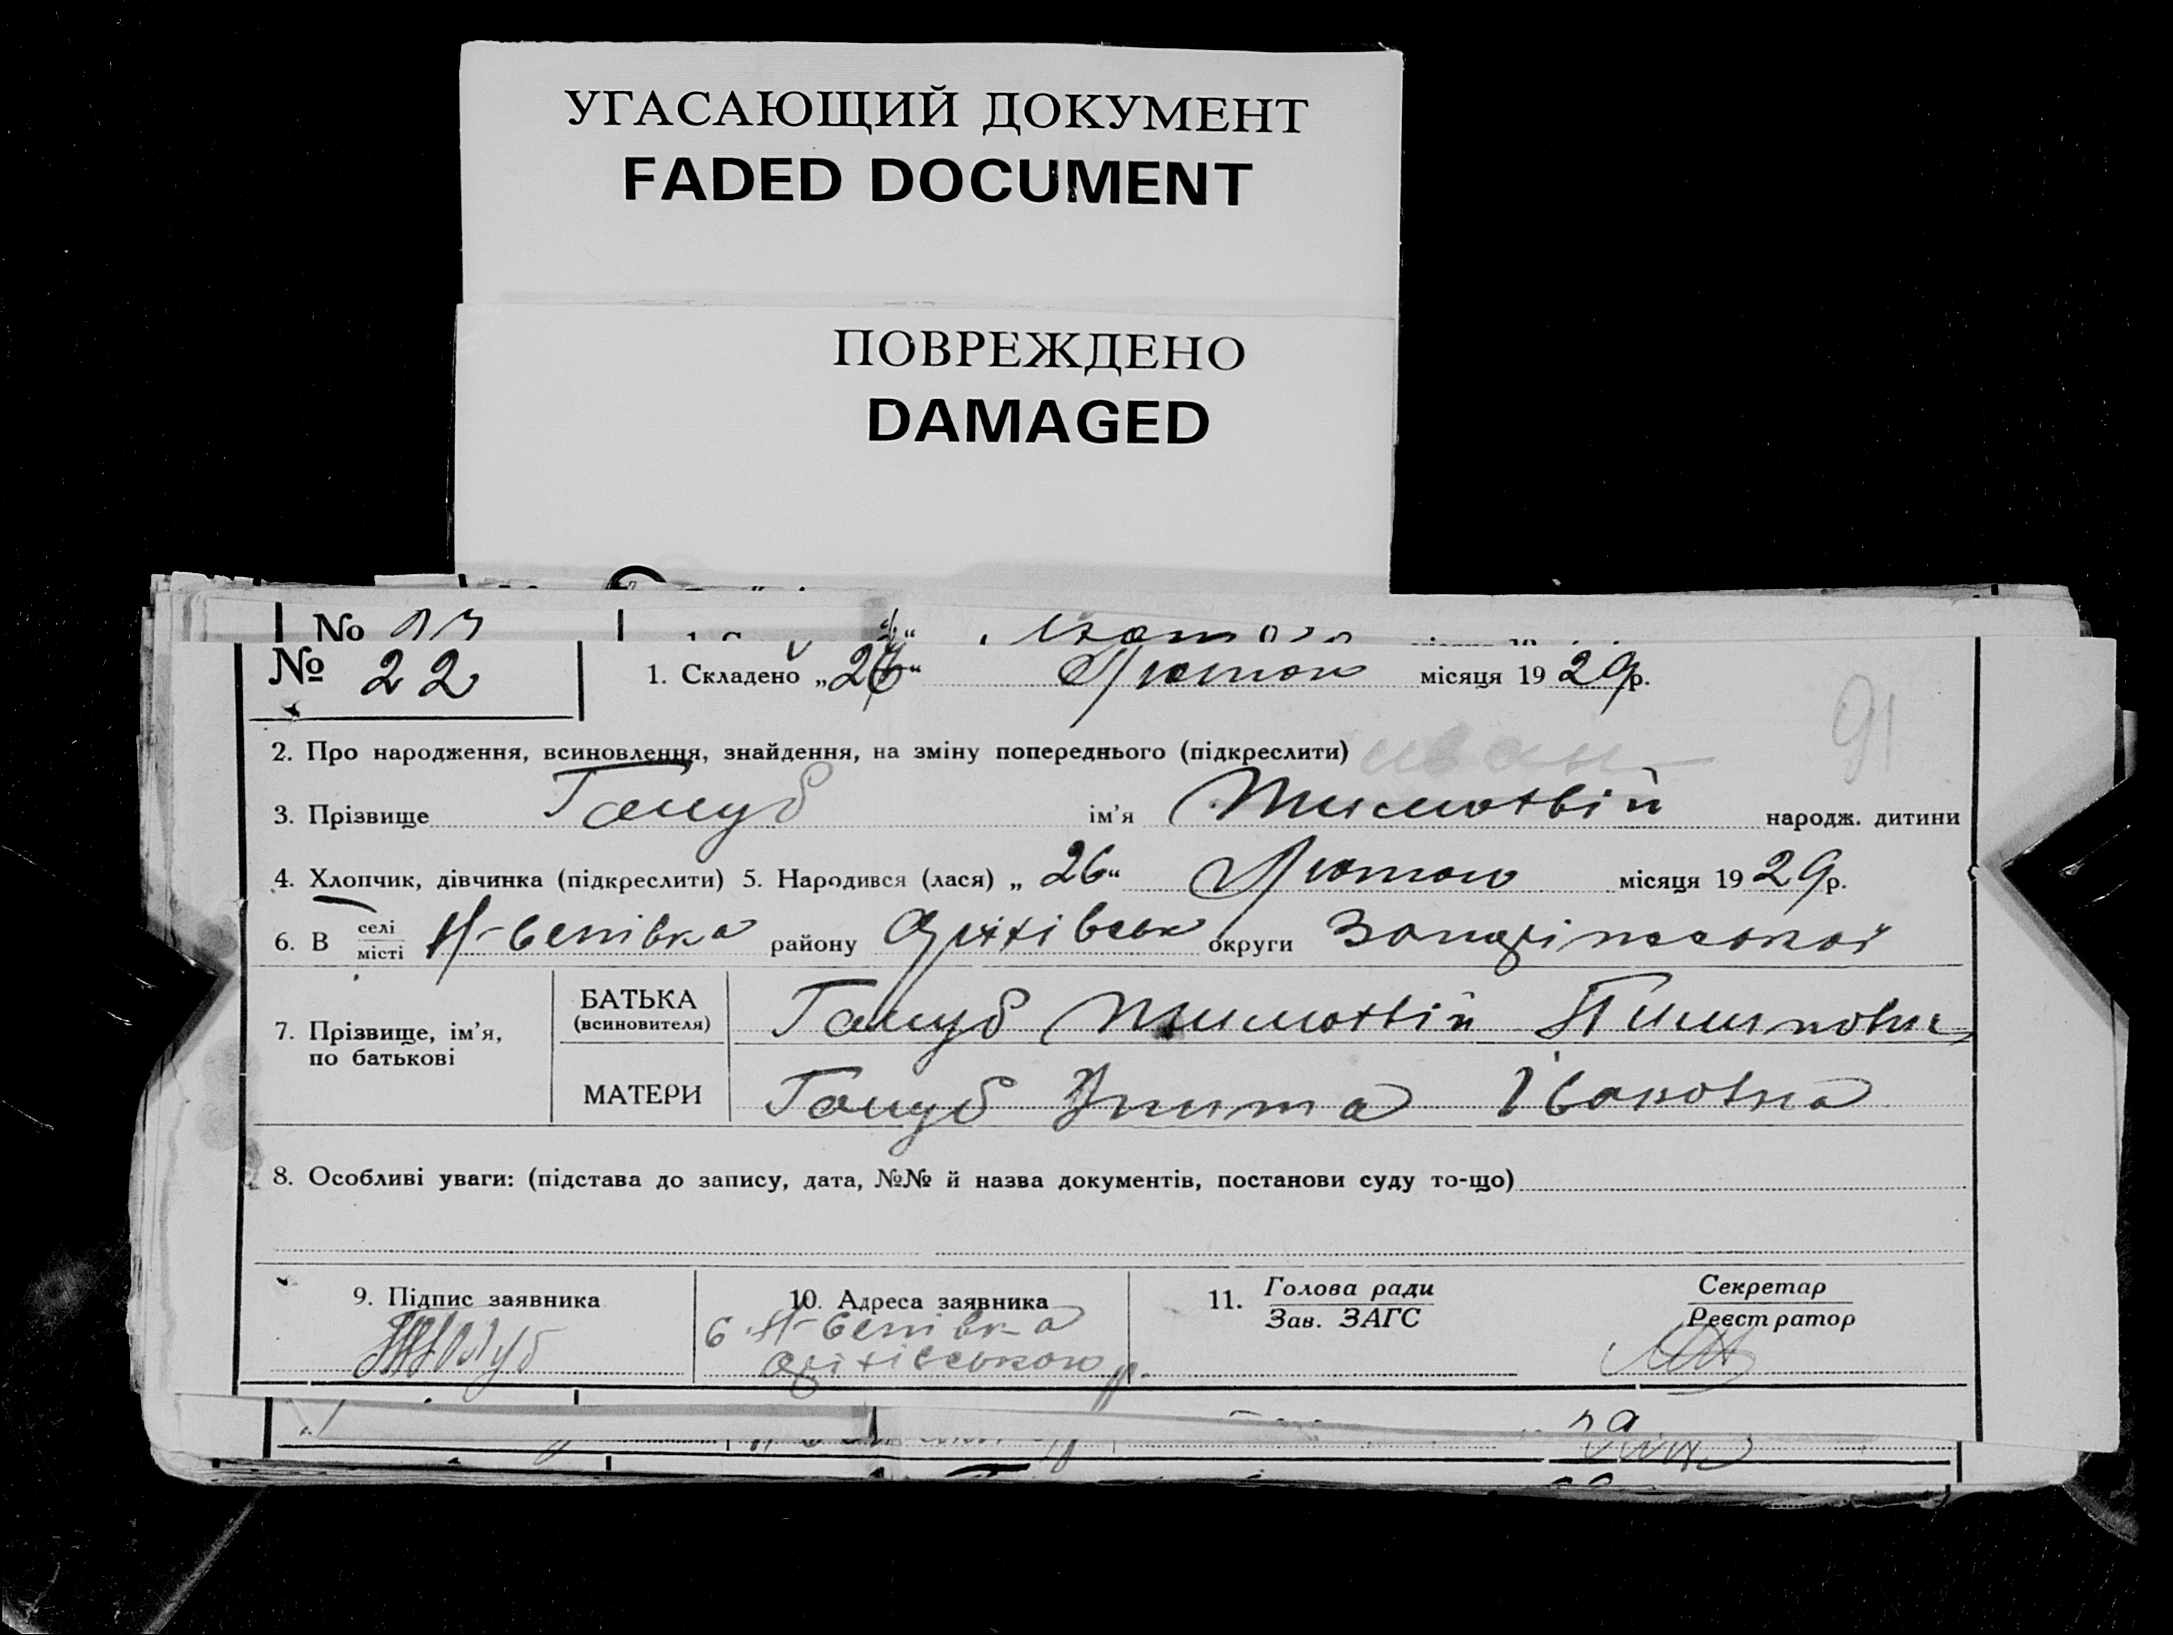 УГАСАЮЩИЙ ДОКУМЕНТ
FADED DOCUMENT
ПОВРЕЖДЕНО
DAMAGED
№
№ 22 1. Складено „26“ Лютого місяця 1929р.
91
2. Про народження, всиновлення, знайдення, на зміну попереднього (підкреслити) иван
3. Прізвище Голуб ім'я Тимотвій народж. дитини
4. Хлопчик, дівчинка (підкреслити) 5. Народився (лася) „26“ Лютого місяця 1929р.
6. В селі/місті району Оріхівськ округи
7. Прізвище, ім'я, по батькові
БАТЬКА (всиновителя) Голуб Тимотвій Пилипович
МАТЕРИ Голуб Ивановна
8. Особливі уваги: (підстава до запису, дата, №№ й назва документів, постанови суду то-що)
9. Підпис заявника
Голуб
10. Адреса заявника
Оріхівського р.
11. Голова ради
Зав. ЗАГС
Секретар
Реєстратор